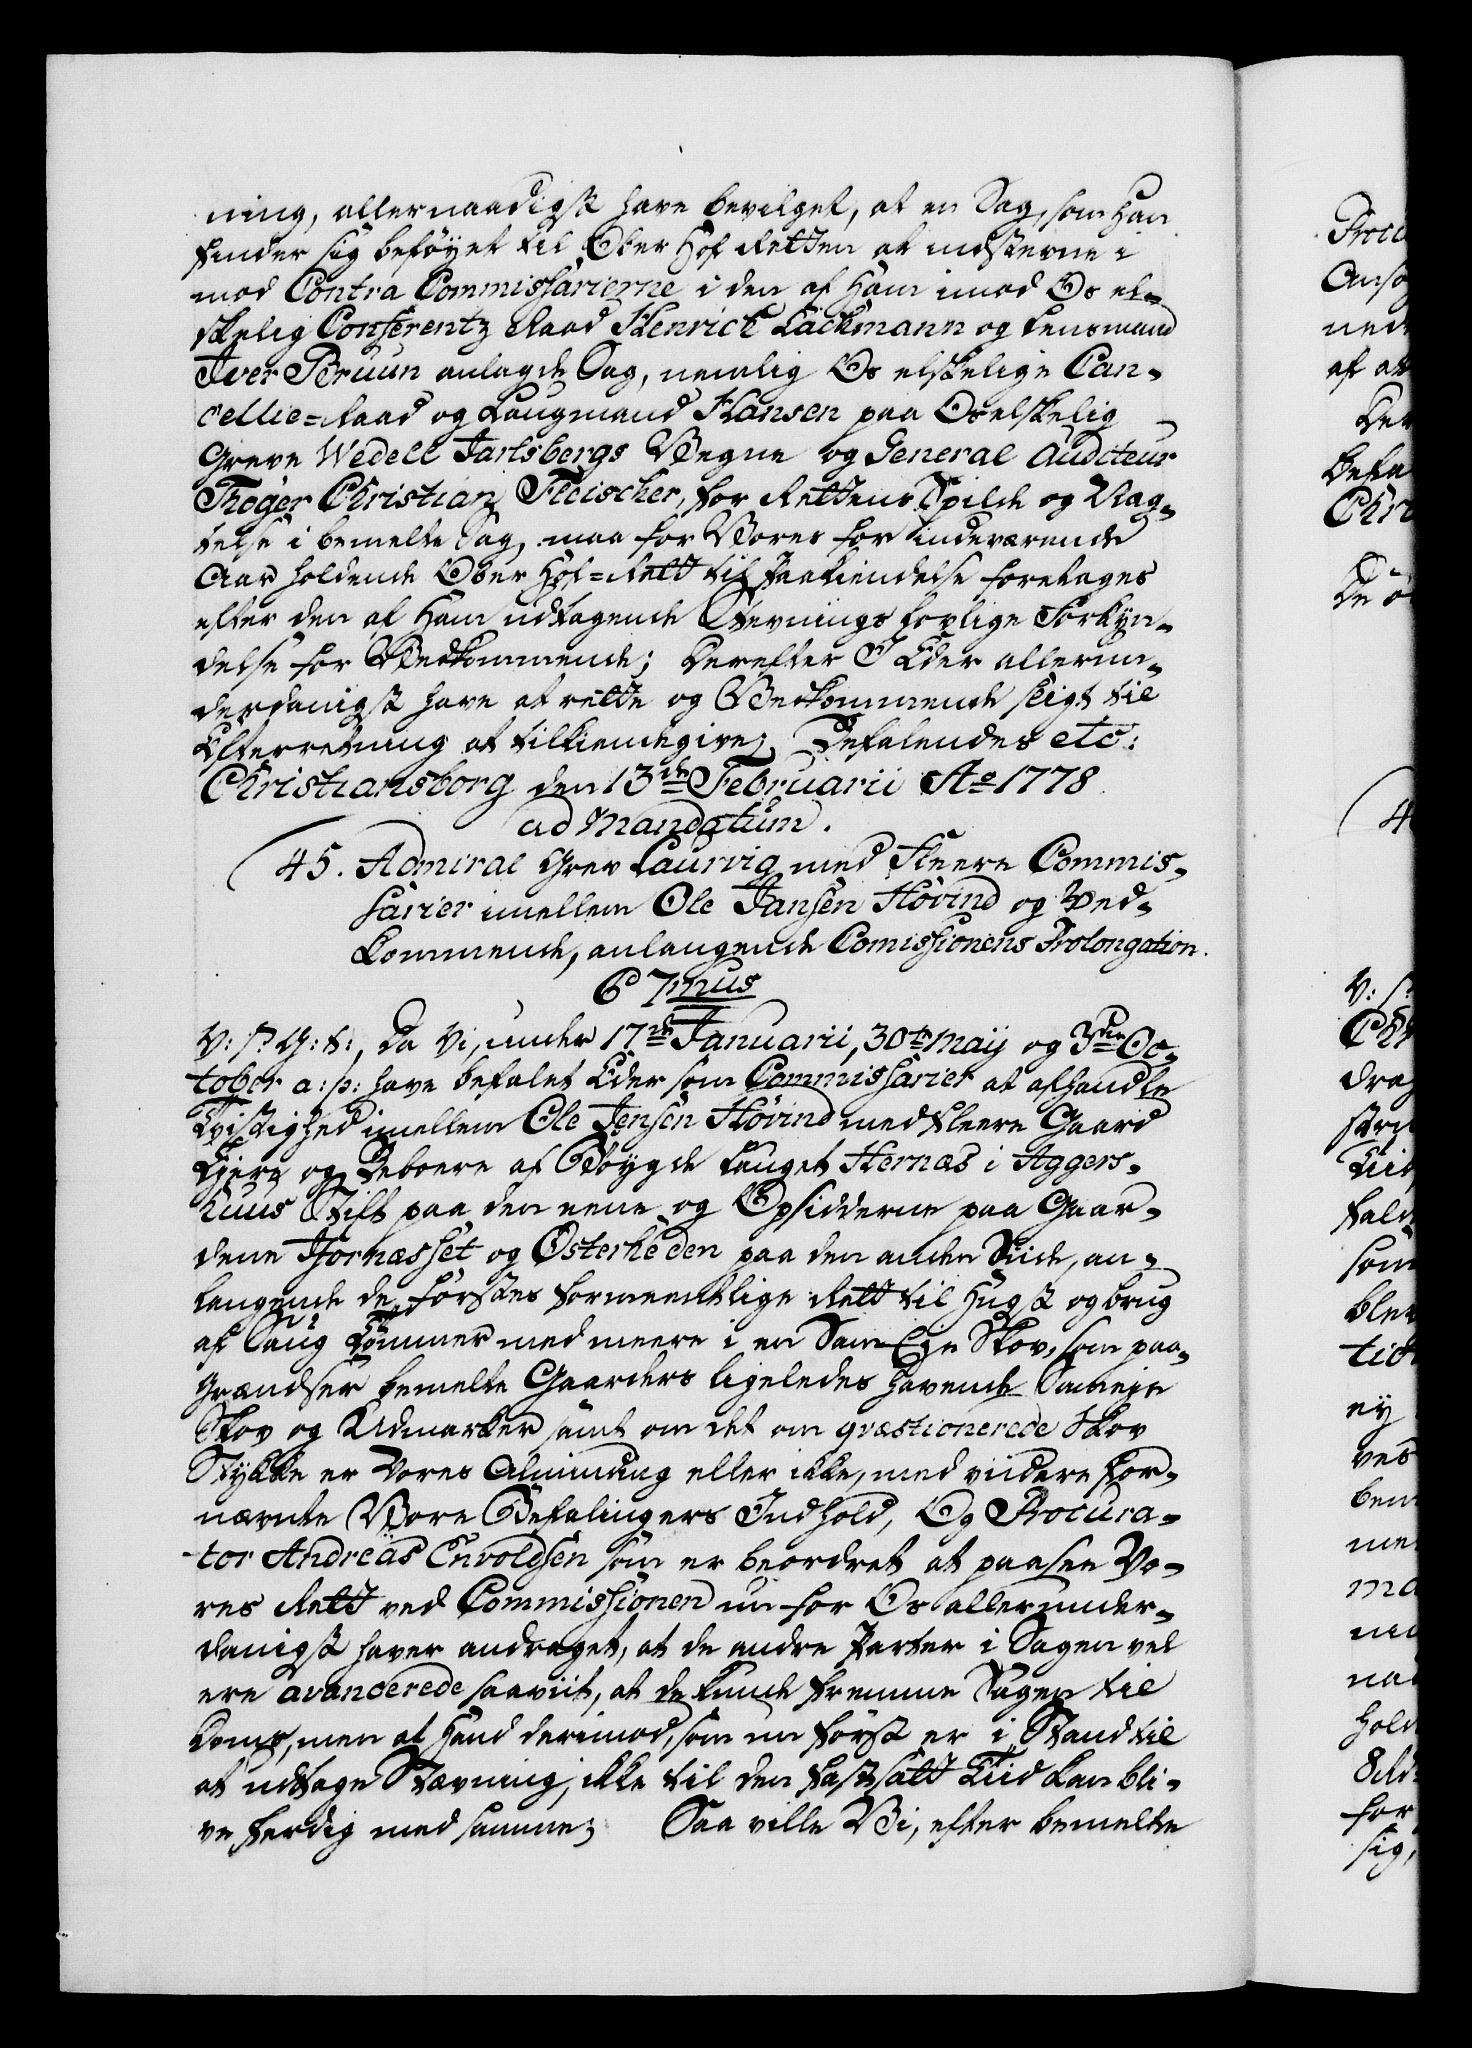 ning, allernaadigst have bevilget, at en Sag, som Han
finder sig beføyet til Ober Hof Retten at indstevne i
mod Contra Commissarierne i den af Ham imod Os el-
skelig Conferentz Raad Henrich Lackmann og Lensmand
Iver Bruun anlagde Sag, nemlig Os elskelige Can-
cellie-Raad og Laugmand Hansen paa Os elskelig
Greve Wedell Jarlsbergs Vegne og General Auditeur
Røger Christian Fleischer, for Rettens Spilde og Næg-
telse i bemelte Sag, maa for Vores for indeværende
Aar holdende Ober Hof-Rett til Paakiendelse foretages
efter den af Ham udtagende Stevnings lovlige Forkyn-
delse for Vedkommende; Derefter I Eder allerun-
derdanigst have at rette og Vedkommende sligt til
Efterretning at tilkiendegive, Befalendes etc:
Christiansborg den 13de Februarii Ao 1778
ad Mandatum.
45. Admiral Grev Laurvig med fleere Commis-
sarier imellem Ole Jansen Hovind og Ved-
kommende, anlangende Comissionens Prolongation.
C 7mus
V: S. G: T:, Da Vi, under 17de Januarii, 30te Maij og 3die Oc-
tober a: p: have befalet Eder som Commissarier at afhandle
Tvistighed imellem Ole Jensen Hovind med fleere Gaard
Ejere og Beboere af Bøygde Lauget Hernæs i Aggers-
huus Stift paa den eene og Opsidderne paa Gaar-
dene Hornæsset og Østerheden paa den anden Side, an-
langende de førstes formeentlige Rett til Hugst og brug
af Saug Tømmer med meere i en Sam Eje Skov, som paa-
grændser bemelte Gaarders ligeledes havende Sameje
Skov og Udmarker samt om det om qvæstionerede Skov
Stykke er Vores Alminding eller ikke, med viidere for-
nævnte Vore Befalingers Indhold, Og Procura-
tor Andreas Envoldsen som er beordret at paasee Vo-
res Rett ved Commissionen nu for Os allerunder-
danigst haver andraget, at de andre Parter i Sagen vel
ere avancerede saaviit, at de kunde fremme Sagen til
Doms, men at Hand derimod, som nu først er i Stand til
at udtage Stævning, ikke til den fastsatt Tiid kan bli-
ve færdig med samme; Saa ville Vi, efter bemelte